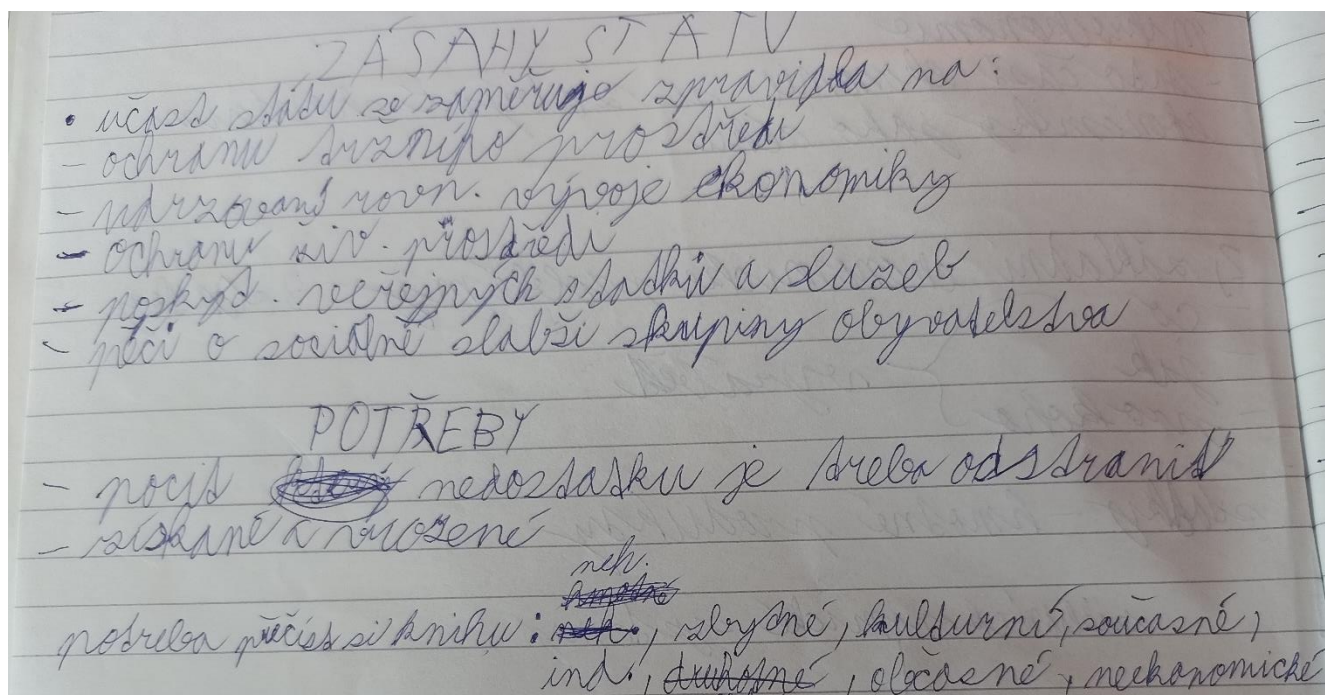 ZÁSAHY STÁTU
• účast státu se zaměřuje zpravidla na:
- ochranu tržního prostředí
- udrzování rovn. vývoje ekonomiky
- ochranu živ. prostředí
- poskyt. veřejných statků a služeb
- péči o sociálně slabší skupiny obyvatelstva
POTŘEBY
- pocit nedostatku je třeba odstranit
- získané a vrozené
neh.
hmotné
potreba přečíst si knihu: neh., zbytné, kulturní, současné,
ind., druhotné, občasné, neekonomické